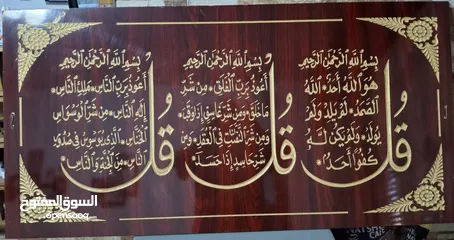 بسم الله الرحمن الرحيم
قل
هو الله أحد الله
الصمد لم يلد ولم
يولد ولم يكن له
كفوا أحد
بسم الله الرحمن الرحيم
قل
أعوذ برب الفلق من شر
ما خلق ومن شر غاسق إذا وقب
ومن شر النفاثات في العقد ومن
شر حاسد إذا حسد
بسم الله الرحمن الرحيم
قل
أعوذ برب الناس ملك الناس
إله الناس من شر الوسواس
الخناس الذي يوسوس في صدور
الناس من الجنة والناس
السوق المفتوح
opensooq.com